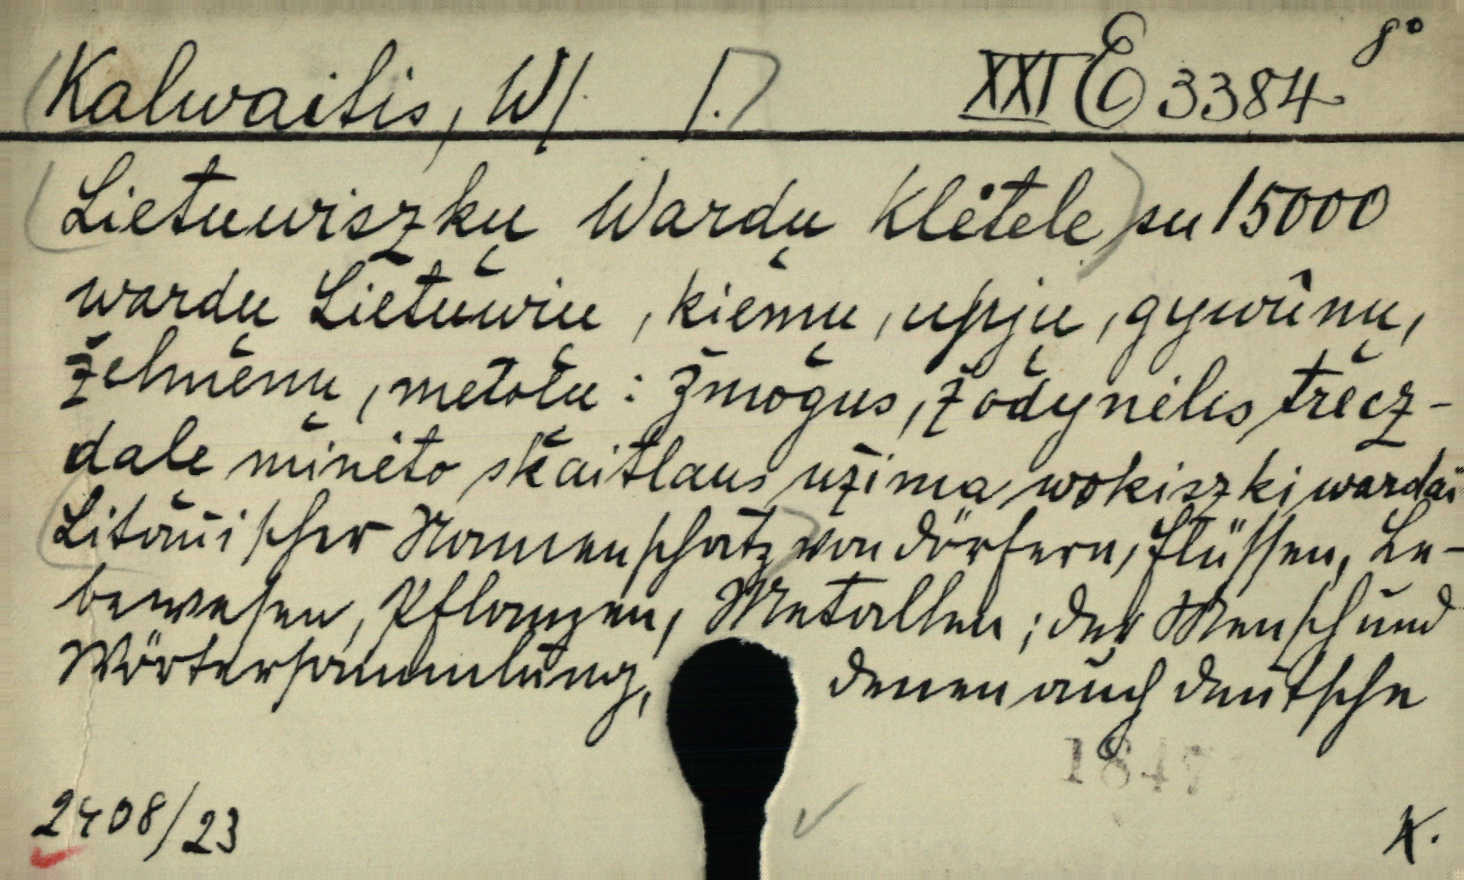 Kalwaitis, W/. /.7 XXI E 3384 8°
Lietuwiszkų Wardų Klėtele su 15000
wardų Lietuwių, kiemų, upjų, gywûnų,
želmenų, metolų: žmogus, žodynėlis trecz-
dale minėto skaitlaus užima wokiszki wardai
Litauischer Namenschatz von Dörfern, Flüssen, Le-
bewesen, Pflanzen, Metallen; der Mensch und
Wörtersammlung, denen auch deutsche
1847
2408/23 K.